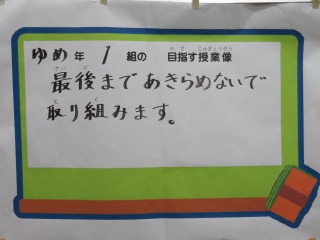 ゆめ年 1 組の 目指す授業像
最後まであきらめないで
取り組みます。